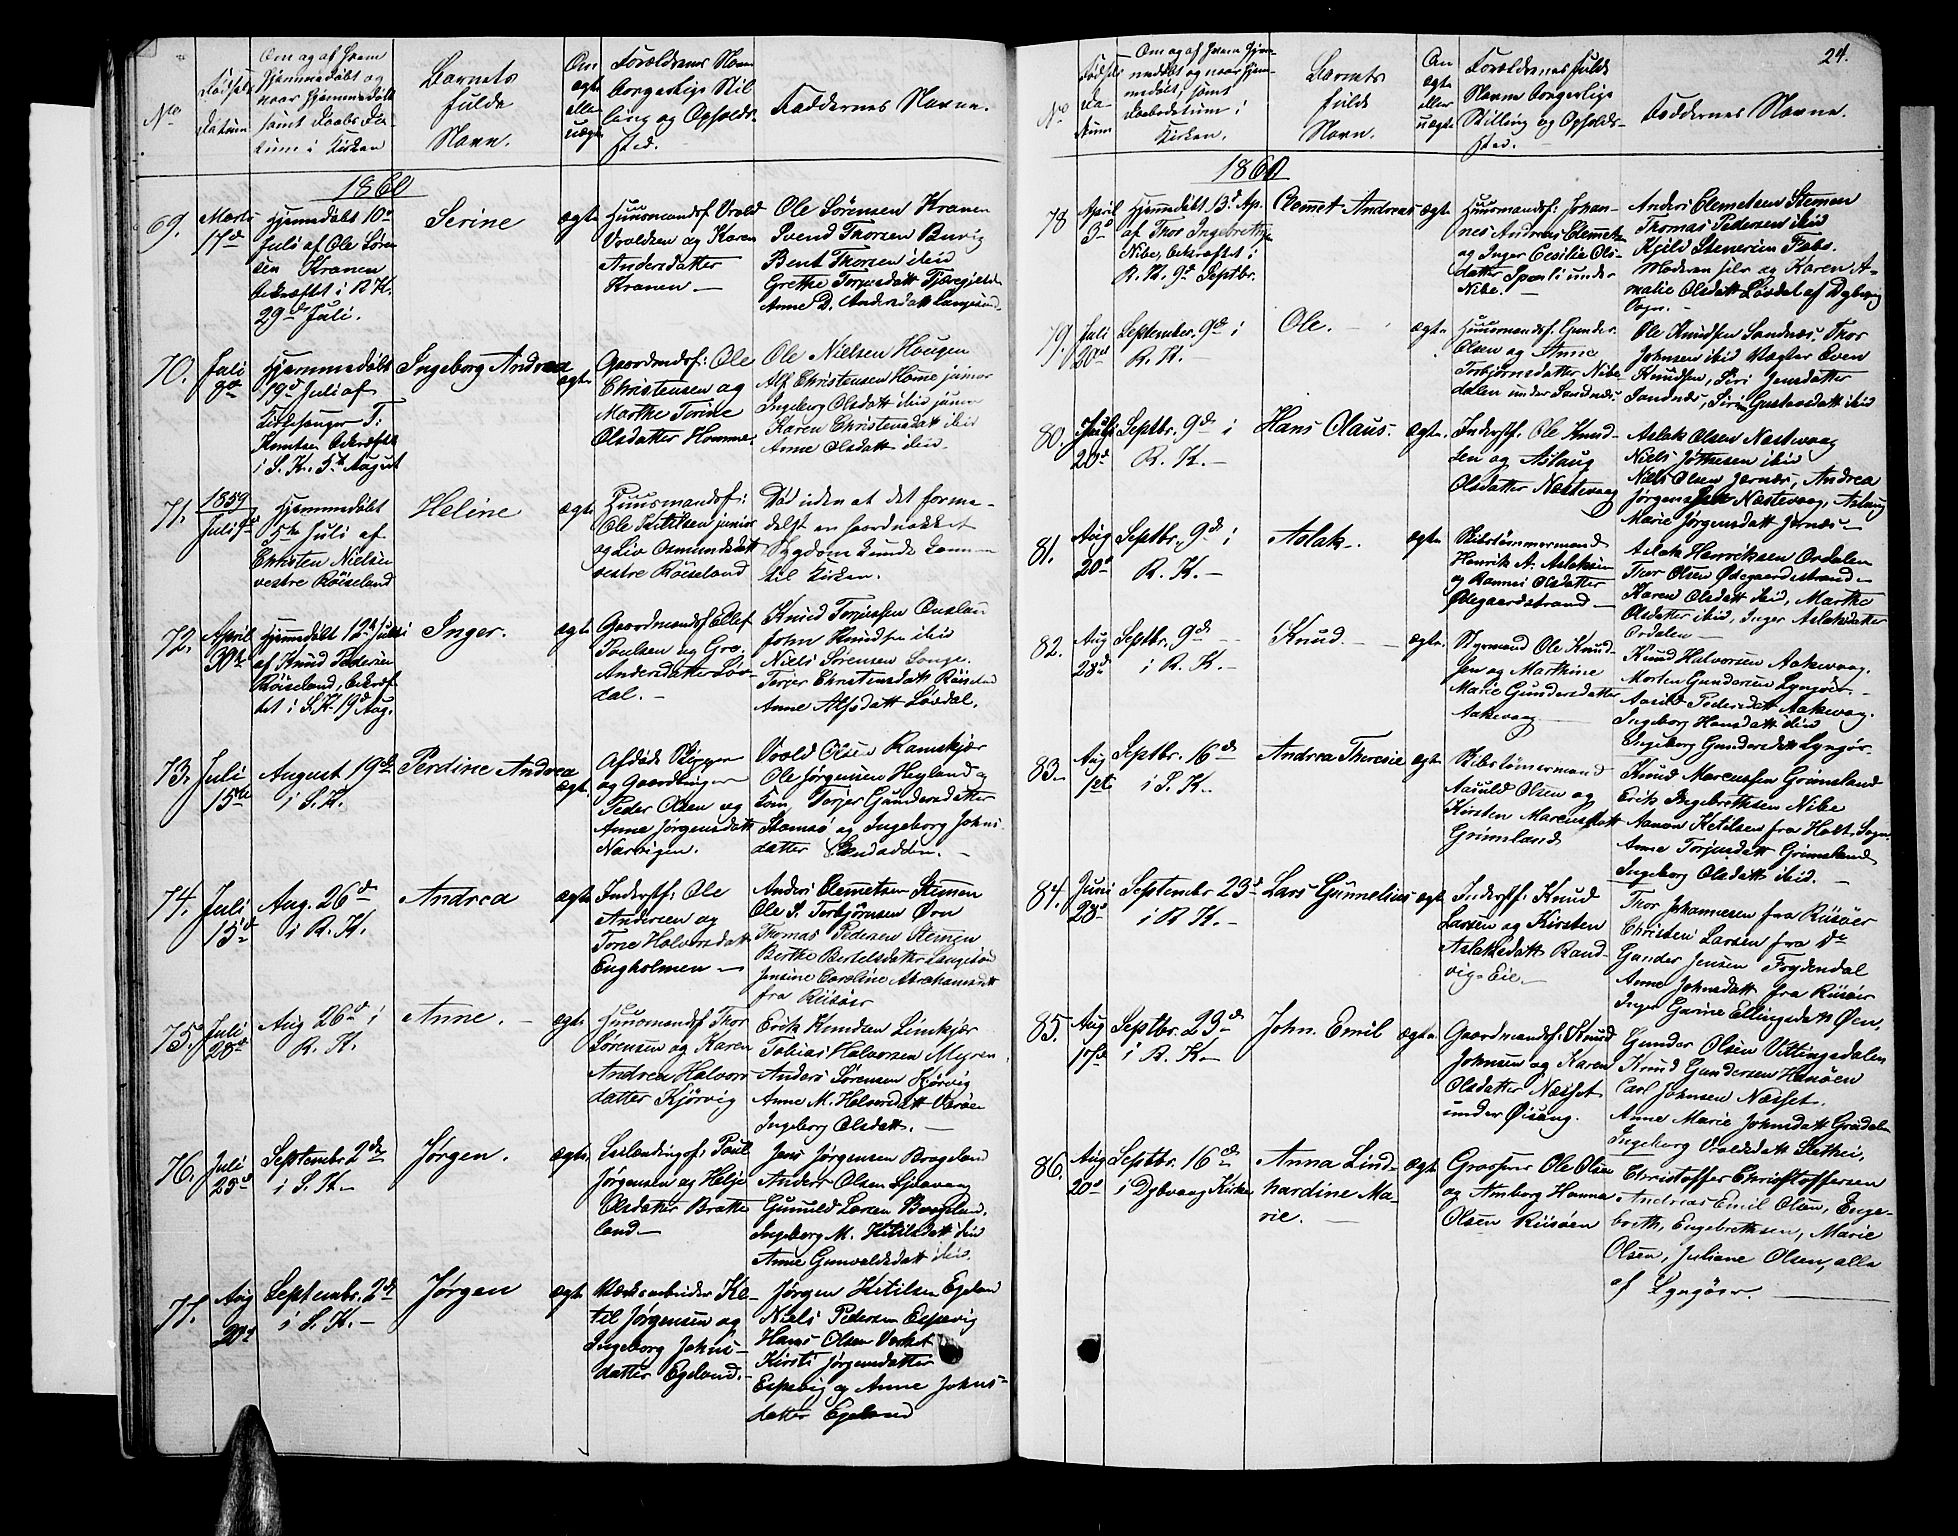 No
Fødsels
datum
Om og af hvem
hjemmedøbt og
naar hjemmedøbt
samt Daabs Da-
tum i Kirken
Barnets
fulde
Navn.
Om
ægte
eller
uægte
Forældrenes Navn
borgerlige Stil
ling og Opholds-
sted.
Faddernes Navne.
1860
69.
Marts
17de
Hjemmedøbt 10de
Juli af Ole Søren
sen Kranen
bekræftet i R. K.
29de Juli.
Serine
ægte
Huusmandsf. Uvold
Uvoldsen og Karen
Andersdatter
Kranen. —
Ole Sørensen Kranen
Svend Thorsen Buvig
Bent Thorsen ibid
Grethe Torjusdatt
Anne D. Andersdatt Langsund.
70.
Juli
9de
Hjemmedøbt
19de Juli af
Kirkesanger T.
Knutsen bekræftet
i S. K. 5te August
Ingeborg Andrea
ægte
Gaardmandsf: Ole
Christensen og
Marthe Torine
Olsdatter Homme.
Ole Nielsen Hougen
Alf Christensen Home junior
Ingeborg Olsdatt ibid
Karen Christensdatt ibid
Anne Olsdatt ibid.
71.
1859
Juli 4de
Hjemmedøbt
5te Juli af
Christen Nielsen
vestre Röiseland
Heline
ægte
Huusmandsf:
Ole Ketilsen junior
og Liv Osmundsdatt
vestre Röiseland
Död uden at det forme-
delst en haardnakket
Sygdom kunde komme
til Kirken.
72.
April
30te
Hjemmedøbt 12te Juli
af Knud Pedersen
Röiseland, bekræf
tet i S. K. 19de Aug.
Inger.
ægte
Gaardmandsf. Ellef
Poulsen og Gro
Andersdatter Löv
dal. —
Knud Torjussen
John Knudsen ibid
Niels Sørensen Songe.
Torjer Christensdatt Röiseland
Anne Alfsdatt Lövdal.
73.
Juli
15de
August 19de
i S. K.
Perdine Andrea
ægte
Afdöde Skipper
og Gaardbruger
Peder Olsen og
Anne Jørgensdatt
Narvigen.
Uvold Olsen Ramskjær
Ole Jørgensen Heyland og
Kone, Torjer Gundersdatter
Stamsö og Ingeborg Johns
datter —
74.
Juli
15de
Aug. 26de
i R. K.
Andrea
ægte
Inderstf: Ole
Andersen og
Tone Halvorsdatt
Engholmen —
Anders Clemetsen Stemen
Ole S. Torbjörnsen Örn
Thomas Pedersen Stemen
Berthe Bertelsdatter Langesöe
Jensine Caroline Abrahamsdatt
fra Riisöer
75.
Juli
28de
Aug 26de i
R. K.
Anne. —
ægte
Huusmandsf Thor
Sörensen og Karen
Andrea Halvors
datter Kjörvig
Erik Knudsen Linkjær
Tobias Halvorsen Myren
Anders Sørensen Kjörvig
Anne M. Halvorsdatt Varöen
Ingeborg Olsdatt. —
76.
Juli
25de
Septembr. 2de
i S. K. —
Jørgen.
ægte
Paul
Jørgensen og Helje
Olsdatter Bratte
land —
Jens Jørgensen Brogeland
Anders Olsen
Gunuld Larsen
Ingeborg M. Ketilsdatt ibid
Anne Gunvaldsdatt ibid.
77.
Aug
20de
Septembr. 2de
i S. K. —
Jørgen
ægte
Værksarbeider Ke-
til Jørgensen og
Ingeborg Johns-
datter Egeland.
Jørgen Ketilsen Egeland
Niels Pedersen Espevig
Hans Olsen Verket
Kirsti Jørgensdatter
Espevig og Anne Johns-
datter Egeland
24.
No
Fødsels
Da
tum
Om og af hvem hjem-
medøbt og naar hjem-
medøbt, samt
Daabsdatum i
Kirken.
Barnets
fulde
Navn.
Om
ægte
eller
uægte
Forældrenes fulde
Navne borgerlige
Stilling og Opholds-
sted.
Faddernes Navne.
1860
78
April
3de
Hjemmedøbt 13de Ap.
af Thor Ingebretsen
Nibe, bekræftet i
R. K. 9de Septbr.
Clemet Andreas
ægte
Huusmandsf: Johan-
nes Andreas Clemets.
og Inger Cecilie Ols-
datter under
Nibe. —
Anders Clemetsen Stemen
Thomas Pedersen ibid
Kjøld Stenersen
Moderen selv og Karen A-
malie Olsdatt Lövdal af Dybvaag
Sogn. —
79.
Juli
20de
September 9de i
R. K. —
Ole. —
ægte
Huusmandsf. Gunder
Olsen og Anne
Torbjörnsdatter Nibe-
dalen under Sandnæs.
Ole Knudsen Sandnæs, Thor
Johnsen ibid Even
Knudsen, Siri Jensdatter
Sandnæs, Siri Gustavsdatt ibid
80.
Juli
20de
Septbr. 9de i
R. K. —
Hans Olaus.
ægte.
Inderstf. Ole Knud-
sen og Aslaug
Olsdatter Næstevaag
Aslak Olsen Næstevaag
Niels ibid
Niels Olsen Jernæs, Andrea
Jørgensdatt Næstevaag, Aslaug
Marie Jørgensdatt Jernæs —
81.
Aug
20de
Septbr. 9de i
R. K. —
Aslak. —
ægte
Skibstømmermand
Henrik A. Aslaksen
og Olsdatter
Ödegaardstrand —
Aslak Henriksen Ordalen
Thor Olsen Ödegaardstrand —
Karen Olsdatt ibid, Marthe
Olsdatter ibid, Inger Aslaksdatter
Ordalen —
82.
Aug
28de
Septbr. 9de —
i R. K. —
Knud. —
ægte.
Styrmand Ole Knud-
sen og Marthine
Marie Gundersdatter
Aakevaag —
Knud Halvorsen Aakevaag.
Morten Gundersen Lyngöer —
Pedersdatt Aakevaag.
Ingeborg Hansdatt ibid
Ingeborg Gundersdatt Lyngör.
83. —
Aug
1ste
Septbr. 16de
i S. K. —
Andrea Theresie
ægte
Skibstömmermand
Aasuld Olsen og
Kirsten Marcusdatt
Grimland
Knud Marcussen Grimeland
Erik Ingebretsen Nibe
Aanon Ketilsen fra Holt Sogn
Anne Torjusdatt Grimeland
Ingeborg Olsdatt ibid. —
84.
Juni
28de
Septembr 23de
i R. K. —
Lars Gunnelius
ægte
Inderstf: Knud
Larsen og Kirsten
Aslaksdatt Rand-
vig-Eie. —
Thor Johannesen fra Riisöer
Christen Larsen fra Do
Gunder Jensen Frydendal
Anne Johnsdatt fra Riisöer
Inger Gurine Ellingsdatt Öen,
85.
Aug
17de
Septbr. 23de
i R. K. —
John Emil
ægte.
Gaardmandsf: Knud
Johnsen og Karen
Olsdatter Næsset
under Öisang.
Gunder Olsen Vittingsdalen
Knud Gundersen Hasöen
Carl Johnsen Næsset.
Anne Marie Johnsdatt
Ingeborg Uvoldsdatt
86.
Aug
20de
Septbr. 16de
i Dybvaag Kirke
Anna Lind-
hardine Ma-
rie. —
ægte
Grosserer Ole Olsen
og Amborg Hanna
Olsen Riisöen
Christoffer Christoffersen
Andreas Emil Olsen, Enge-
breth Engebrethsen, Marie
Olsen, Juliane Olsen, alle
af Lyngöer. —